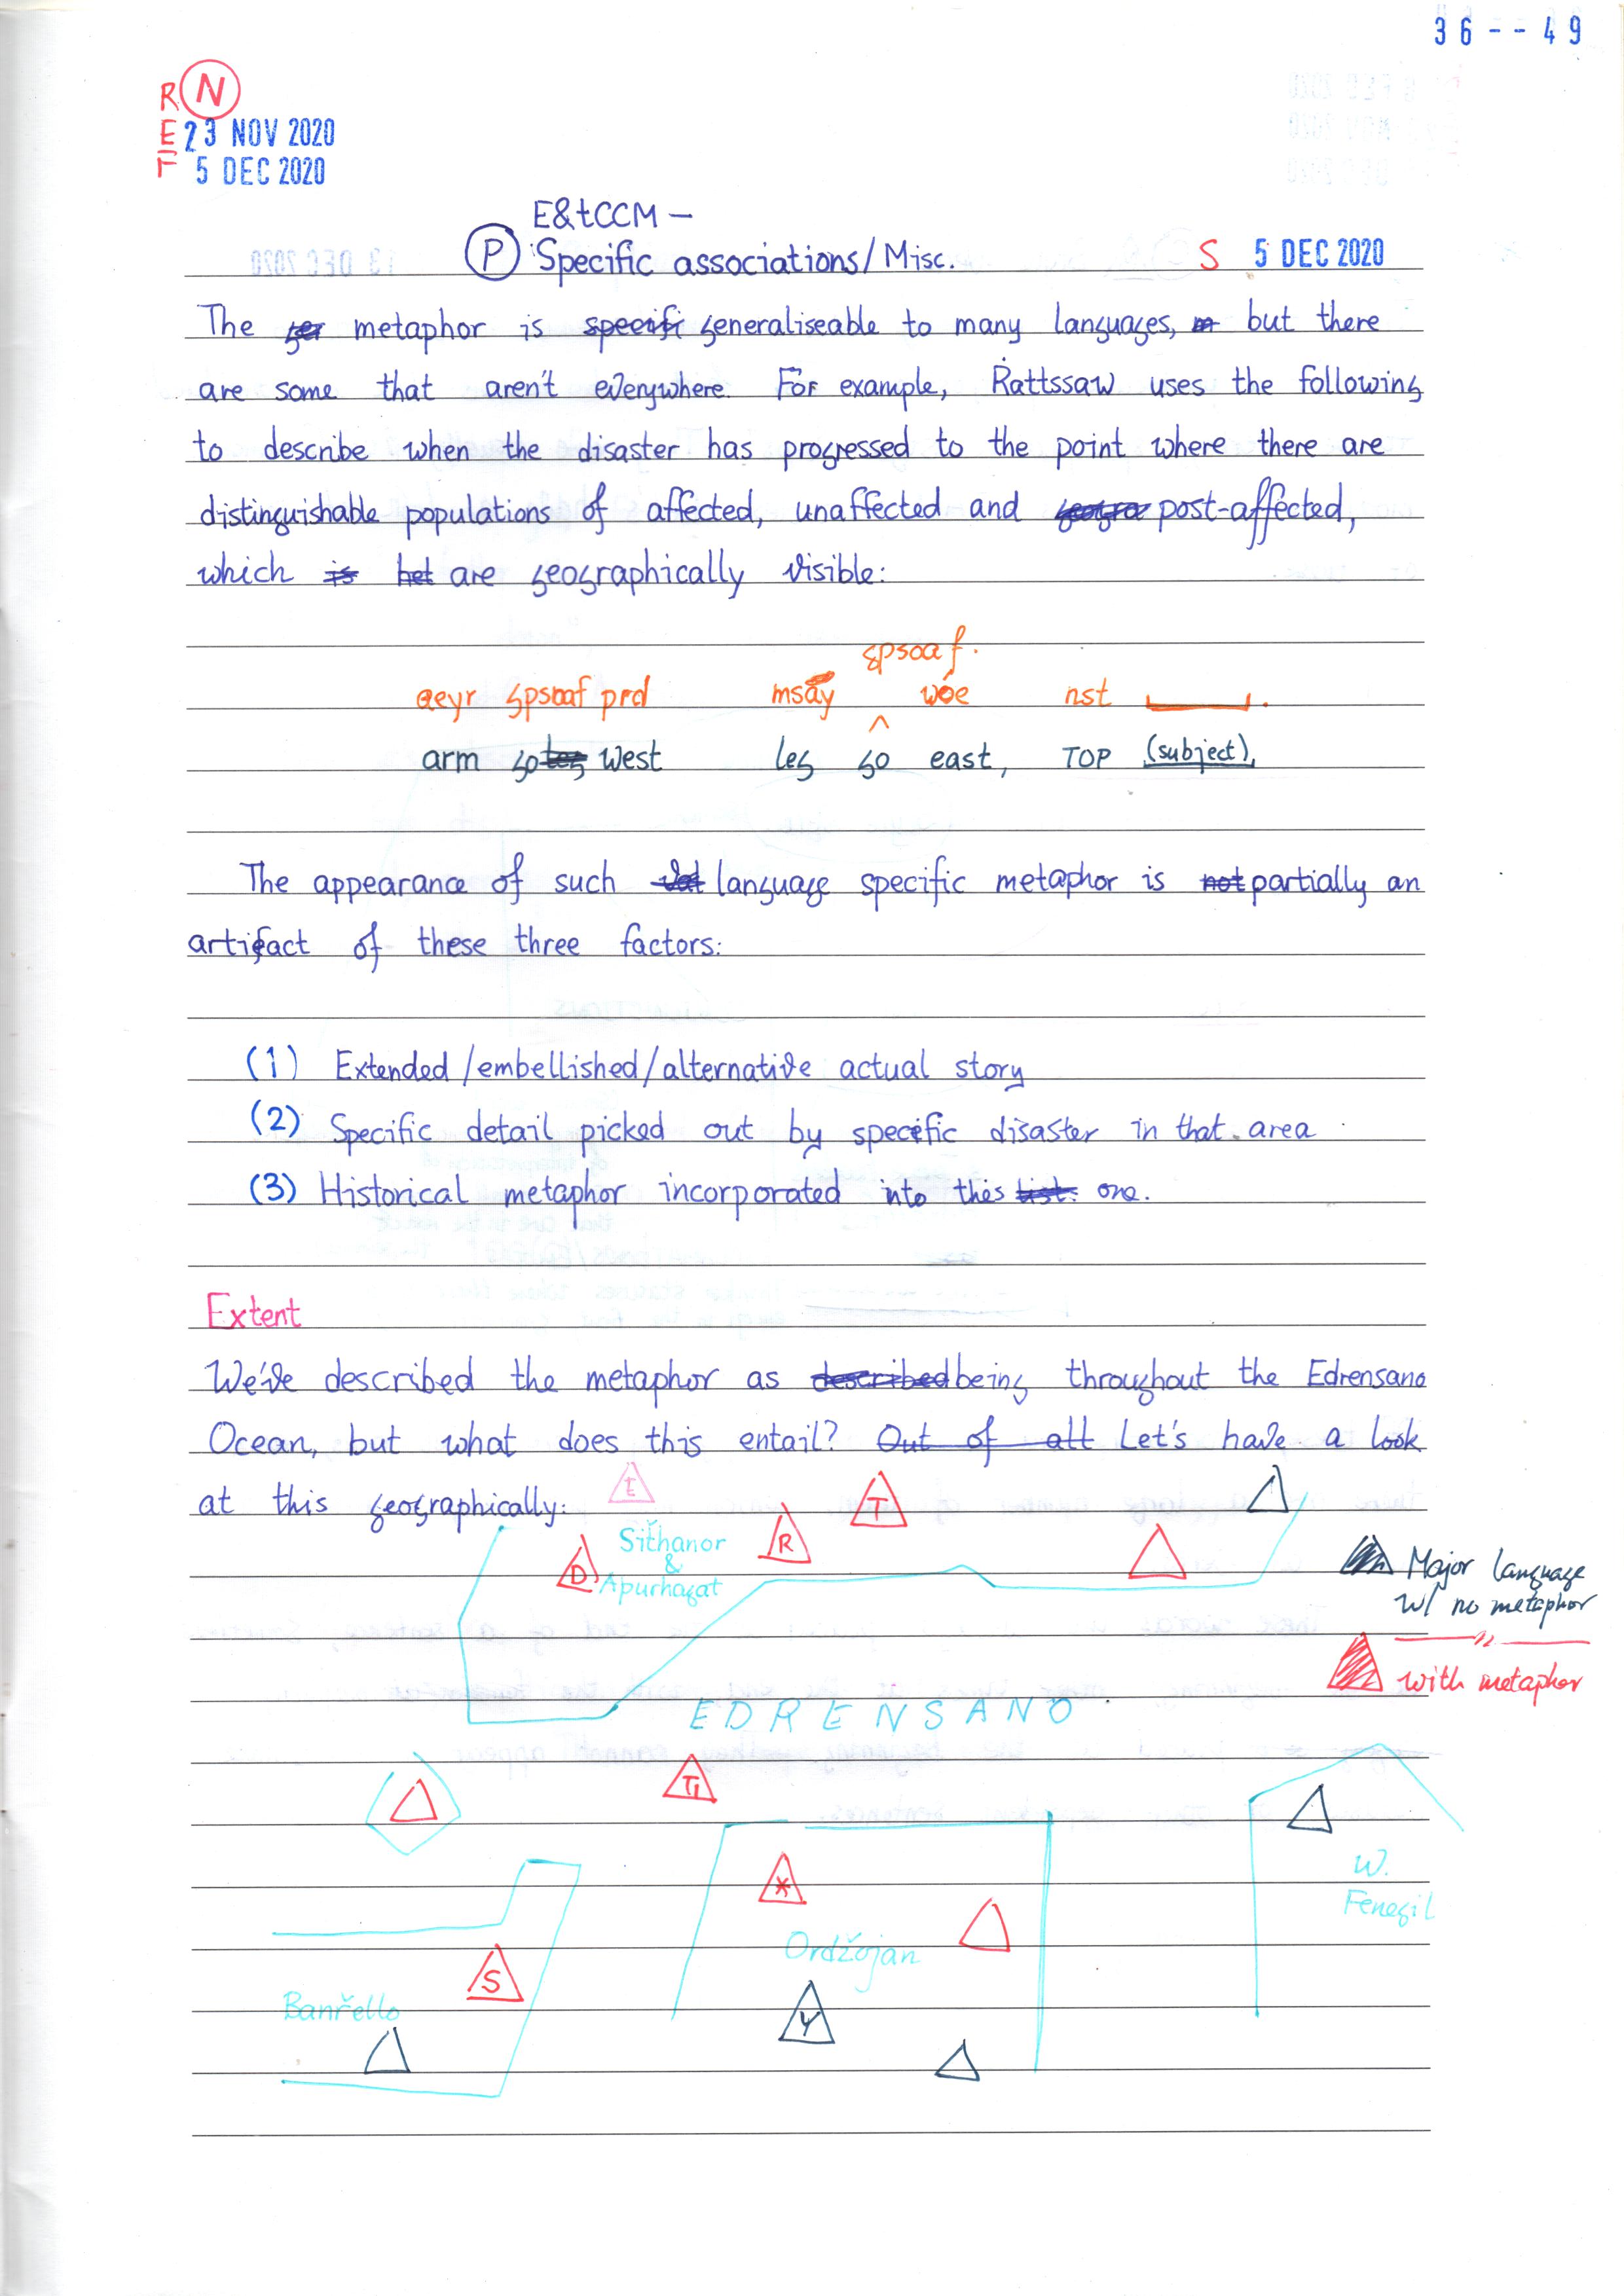 36--49
R N
E 23 NOV 2020
T 5 DEC 2020
E&tCCM –
P Specific associations/Misc. S 5 DEC 2020
The ger metaphor is specifi generaliseable to many languages, m but there
are some that aren't everywhere. For example, Rattssaw uses the following
to describe when the disaster has progressed to the point where there are
distinguishable populations of affected, unaffected and geogra post-affected,
which is het are geographically visible:
gpsoaf.
aeyr gpsoaf prd msay ^ wóe nst ____.
arm go leg west leg go east, TOP (subject).
The appearance of such language specific metaphor is not partially an
artifact of these three factors:
(1) Extended/embellished/alternative actual story
(2) Specific detail picked out by specific disaster in that area
(3) Historical metaphor incorporated into this list. one.
Extent
We've described the metaphor as described being throughout the Edrensano
Ocean, but what does this entail? Out of all Let's have a look
at this geographically:
E
T
R
D
Sithanor
&
Apurhagat
Major language
w/ no metaphor
—"—
with metaphor
EDRENSANO
Ti
*
W.
Fenegil
Ordžojan
S
Banřello
Y